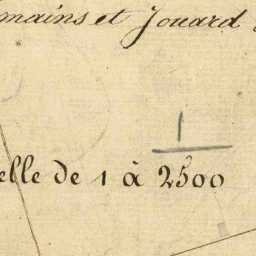 mains et Jouard
1
elle de 1 à 2500